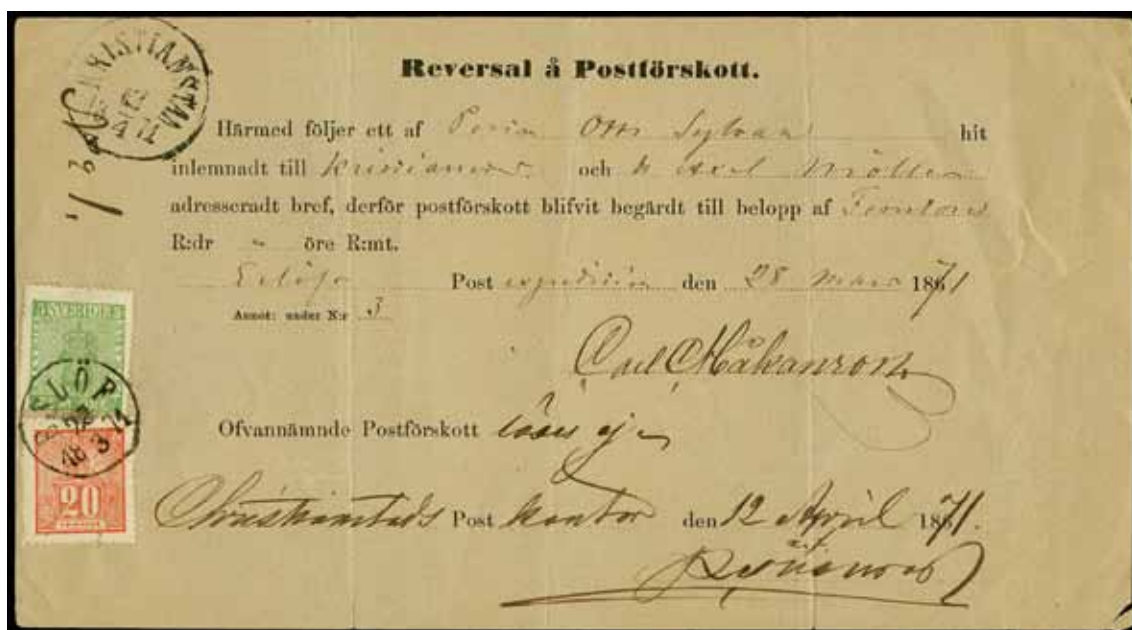 CHRISTIANSTAD
12
4 71
Reversal å Postförskott.
Härmed följer ett af Otto Sylvan hit
inlemnadt till och Axel Möller
adresseradt bref, derför postförskott blifvit begärdt till belopp af Femton
R:dr " öre R:mt.
Eslöfs Post expedition den 28 Mars 1871
Annot: under N:r 3
Carl Håkanson
Ofvannämnde Postförskott löses ej
Christianstads Post kontor den 12 April 1871.
SVERIGE
ESLÖF
28
3
71
20